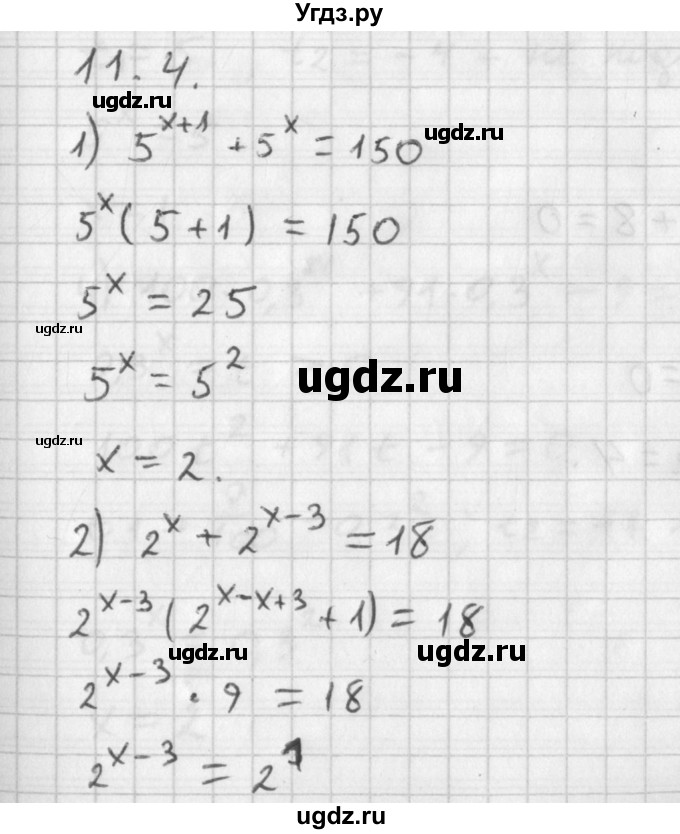 Угдз.ру
11.4.
ugdz.ru
1) 5^{x+1} + 5^x = 150
ugdz.ru
5^x (5+1) = 150
5^x = 25
ugdz.ru
5^x = 5^2
ugdz.ru
ugdz.ru
x = 2.
2) 2^x + 2^{x-3} = 18
2^{x-3} (2^{x-x+3} + 1) = 18
ugdz.ru
ugdz.ru
2^{x-3} · 9 = 18
2^{x-3} = 2^1
ugdz.ru